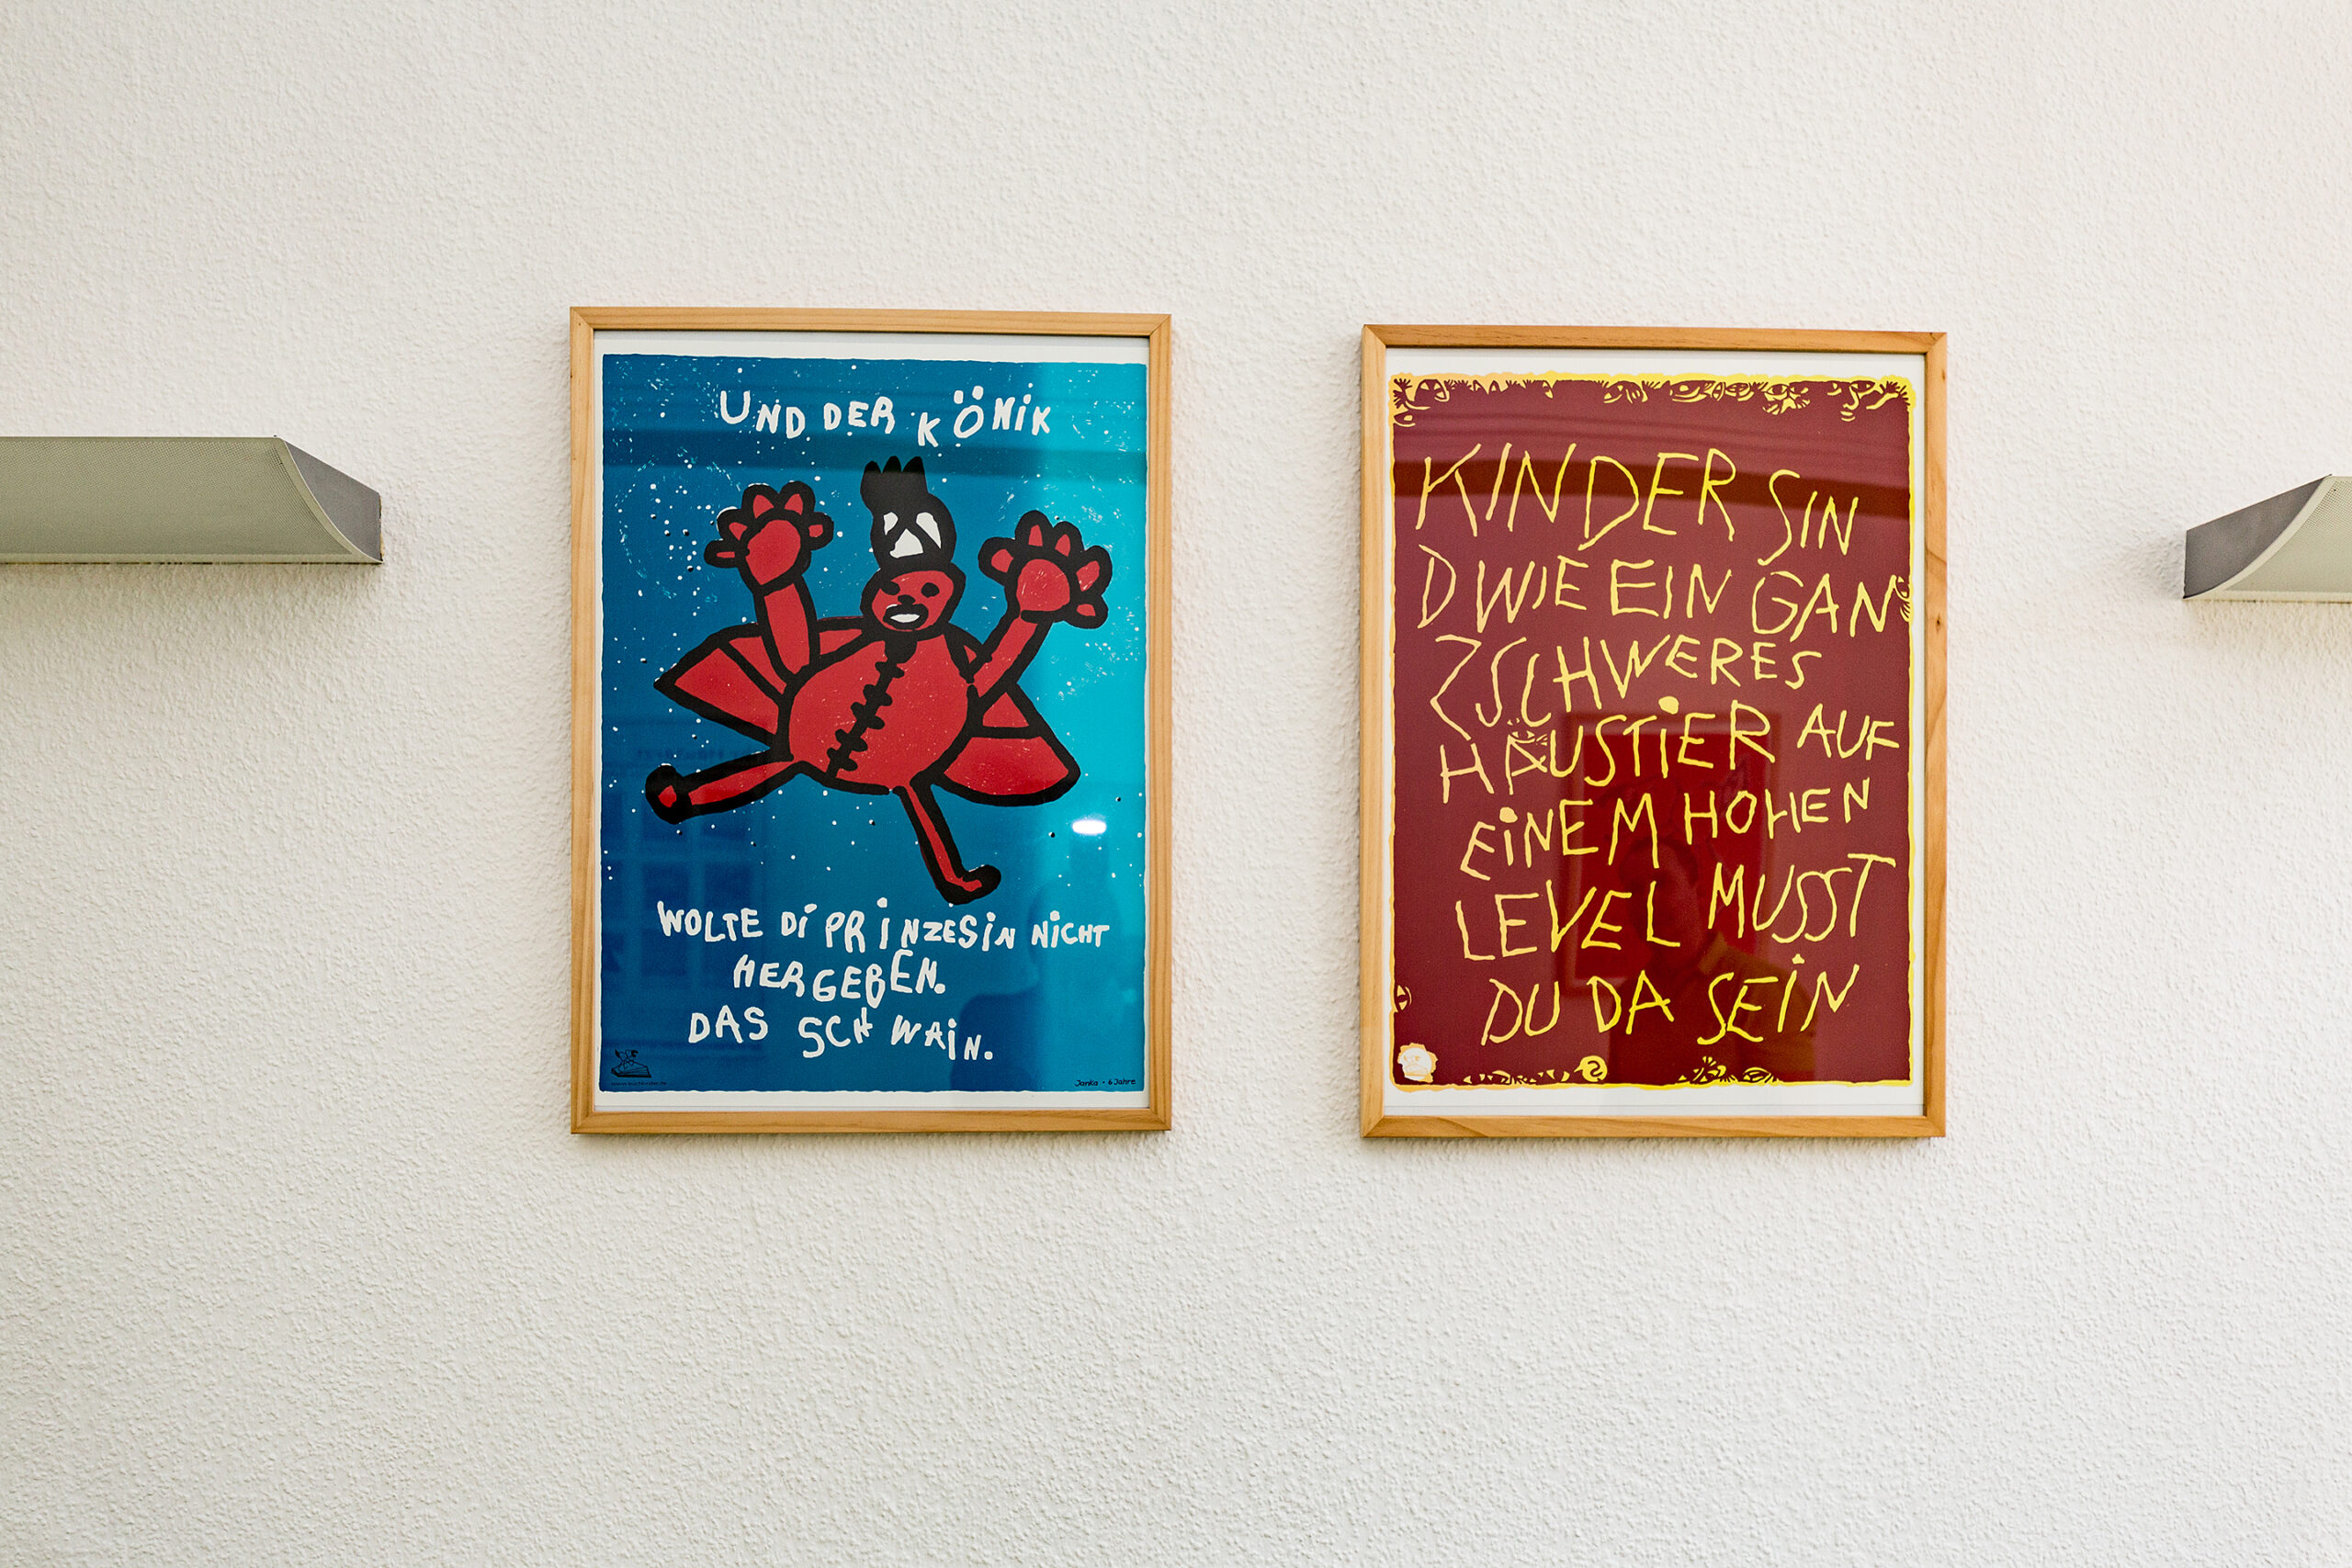 UND DER KÖNiK
WOLTE Di PRiNZESiN NiCHT
HERGEBEN.
DAS SCHWAiN.
Janka - 6 Jahre
KINDER SIN
D WIE EIN GAN
ZSCHWERES
HAUSTiER AUF
EiNEM HOHEN
LEVEL MUSST
DU DA SEiN